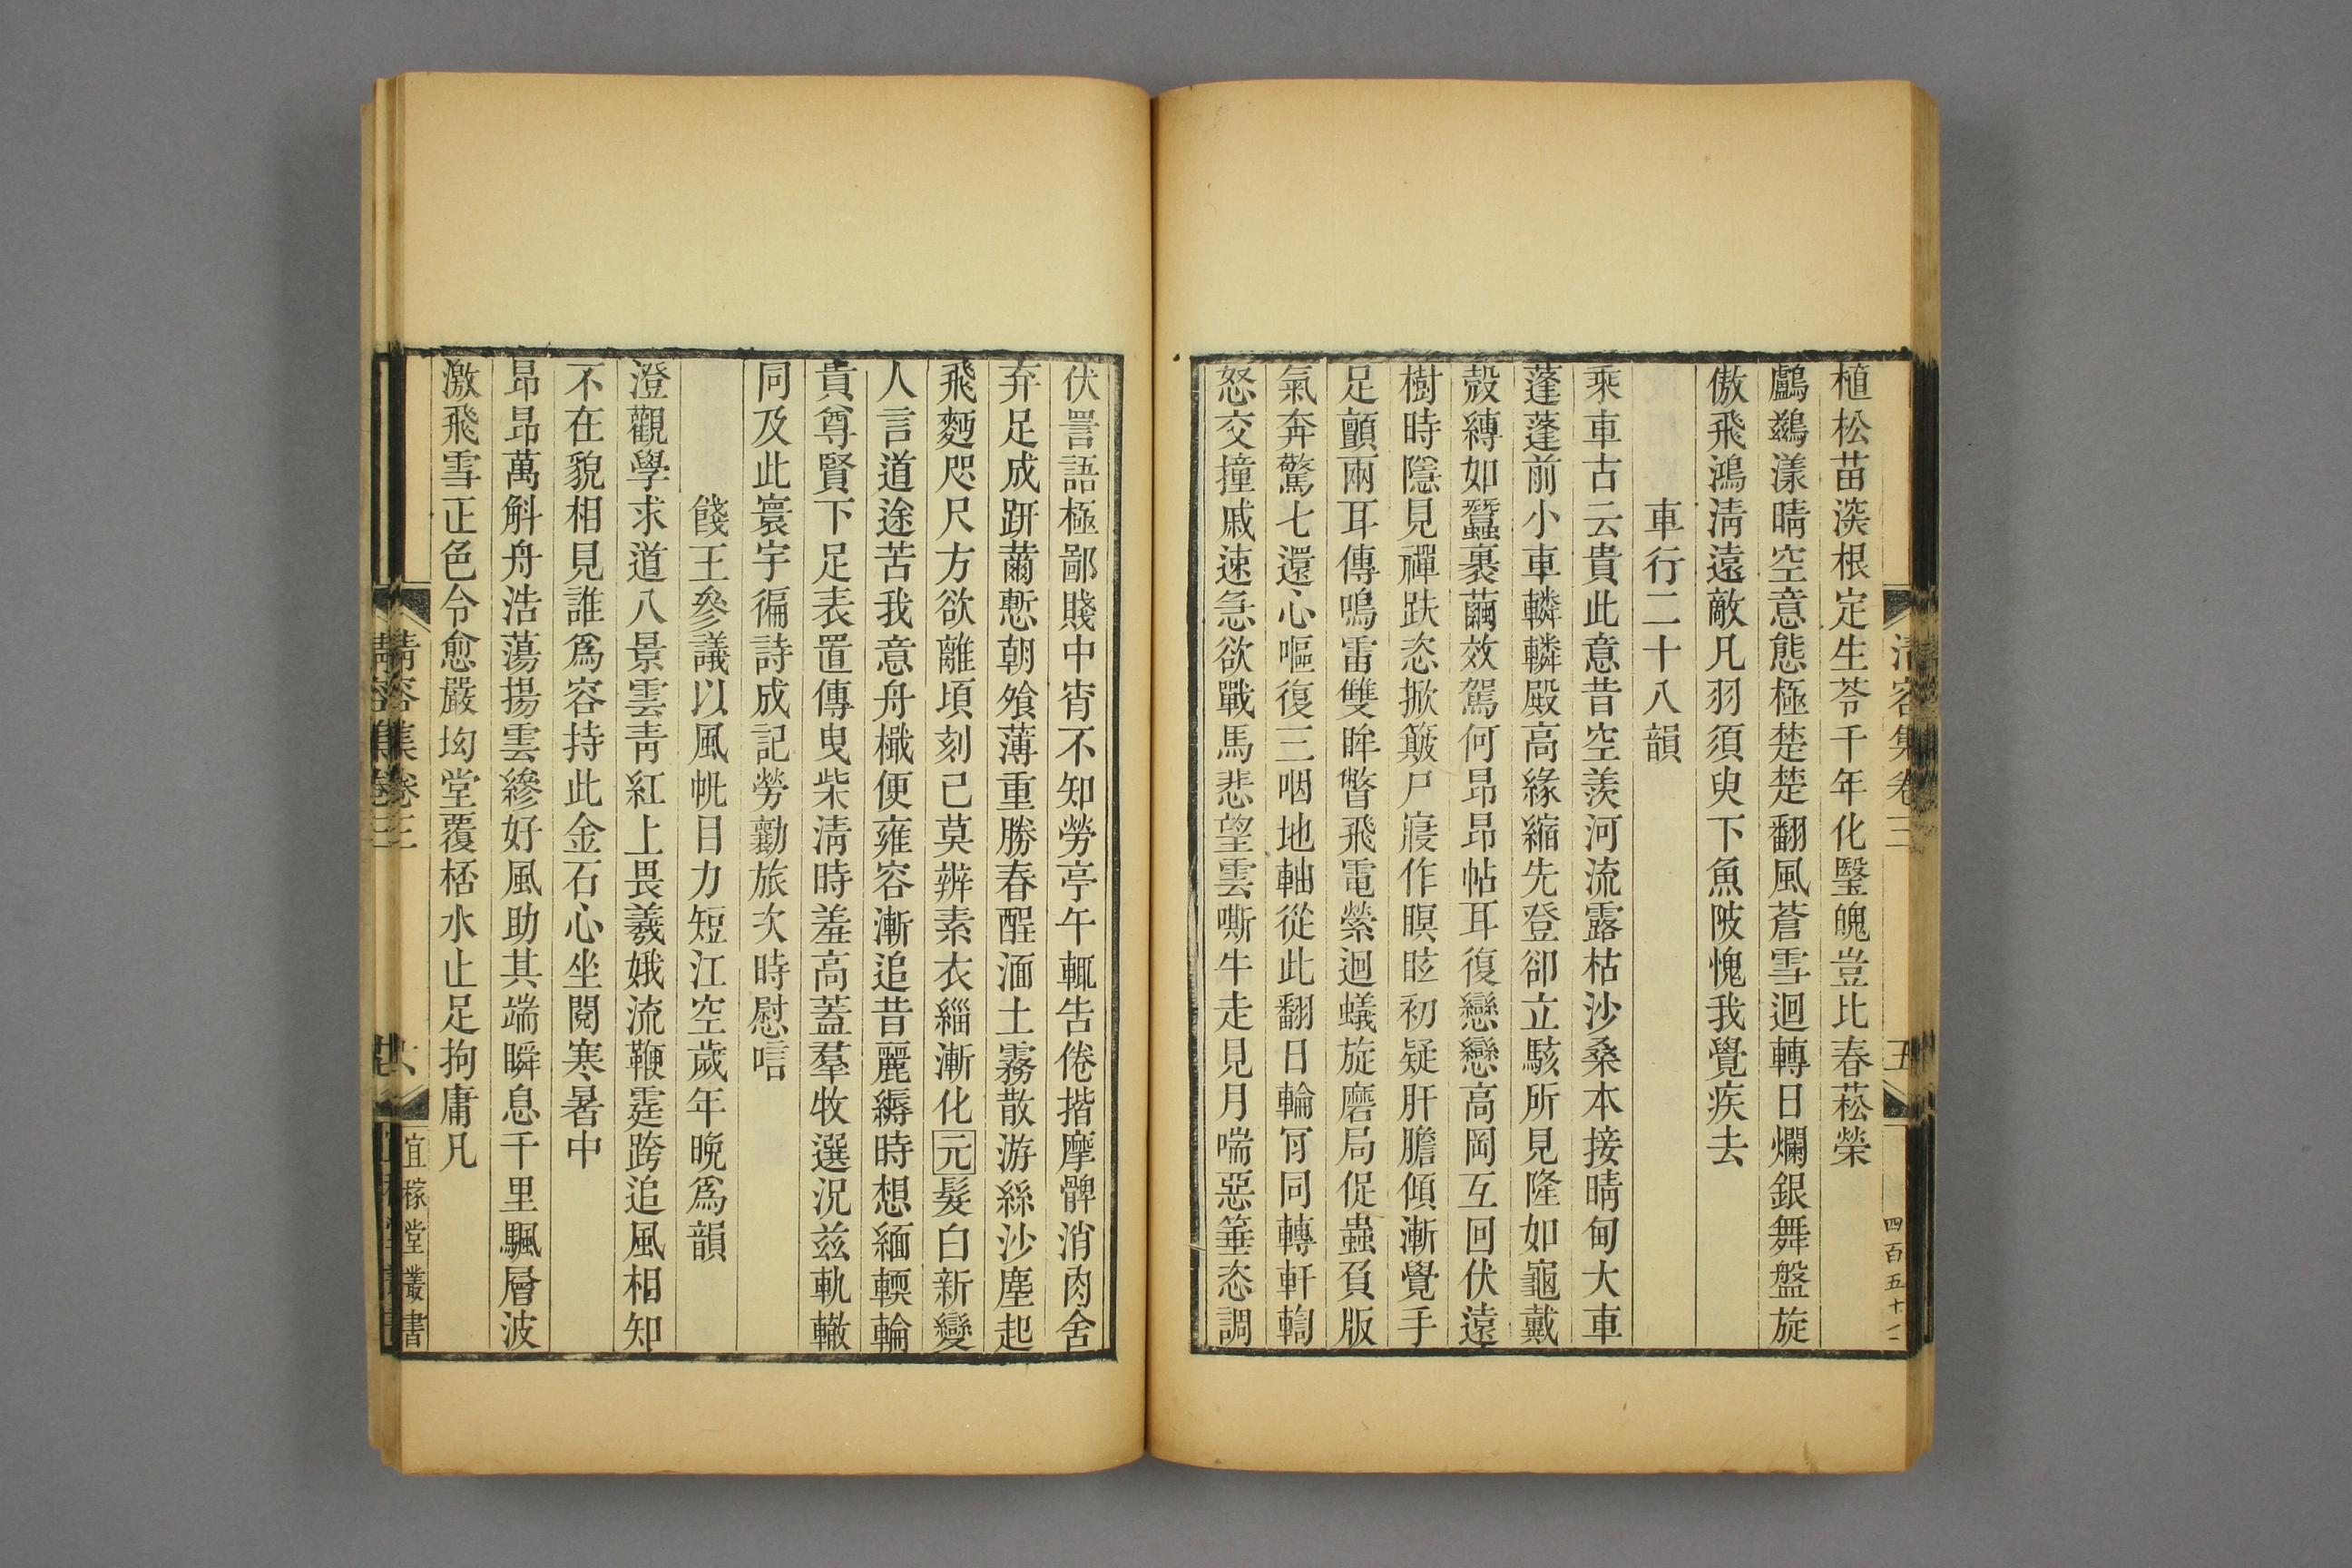 植松苗深根定生苓千年化瑿魄豈比春菘榮
鸕鷀漾晴空意態極楚楚翻風蒼雪迴轉日爛銀舞盤旋
傲飛鴻淸遠敵凡羽須臾下魚陂愧我覺疾去
車行二十八韻
乘車古云貴此意昔空羨河流露枯沙桑本接晴甸大車
蓬蓬前小車轔轔殿高緣縮先登卻立駭所見隆如龜戴
殼縛如蠶裹繭效駕何昂昂帖耳復戀戀高岡互回伏遠
樹時隱見禪趺恣掀簸尸寢作瞑眩初疑肝膽傾漸覺手
足顫兩耳傳鳴雷雙眸瞥飛電縈迴蟻旋磨局促蟲負版
氣奔驚七還心嘔復三咽地軸從此翻日輪冐同轉軒輖
怒交撞戚速急欲戰馬悲望雲嘶牛走見月喘惡箠恣調
伏詈語極鄙賤中宵不知勞亭午輒告倦揩摩髀消肉舍
弃足成趼蕭慙朝飧薄重勝春酲湎土霧散游絲沙塵起
飛麪咫尺方欲離頃刻已莫辨素衣緇漸化元髮白新變
人言道途苦我意舟檝便雍容漸追昔麗縟時想緬輭輪
貴尊賢下足表置傳曳柴淸時羞高蓋羣牧選況兹軌轍
同及此寰宇徧詩成記勞勤旅次時慰唁
餞王參議以風帆目力短江空歲年晚爲韻
澄觀學求道八景雲靑紅上畏羲娥流鞭霆跨追風相知
不在貌相見誰爲容持此金石心坐閱寒暑中
昂昂萬斛舟浩蕩揚雲縿好風助其端瞬息千里颿層波
激飛雪正色令愈嚴坳堂覆桮水止足拘庸凡
淸容集卷三
五
四百五十
淸容集卷三
六
宜稼堂叢書